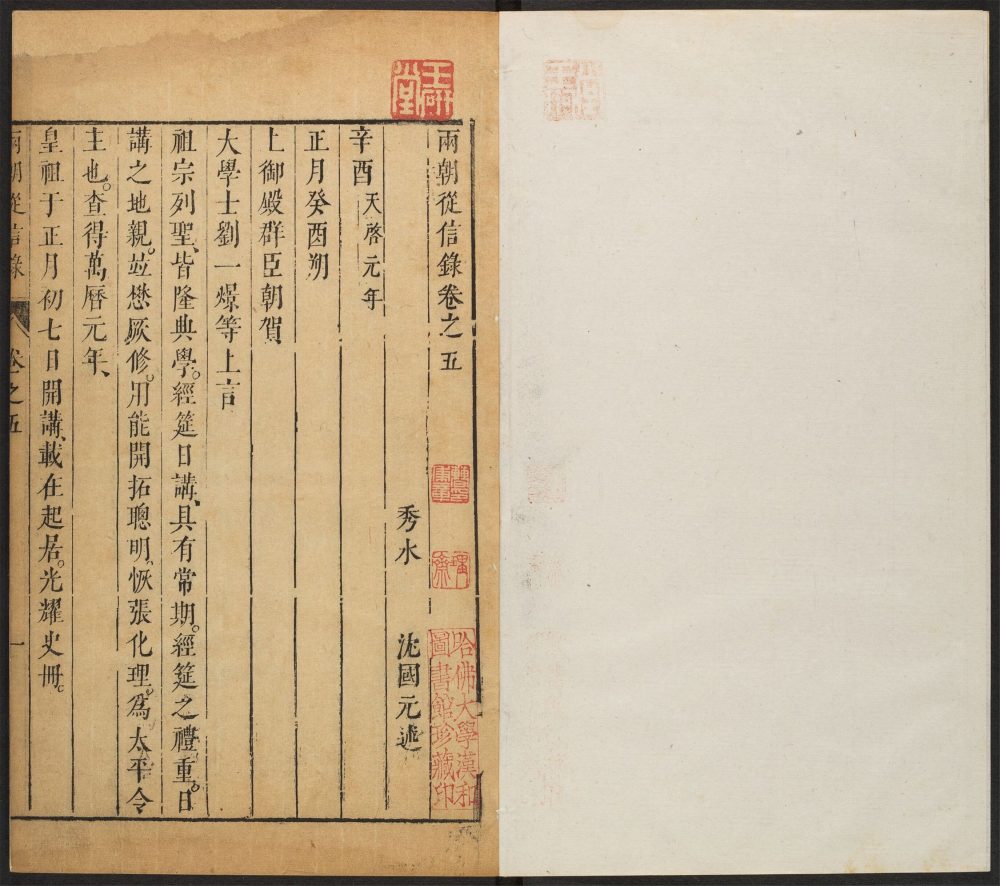 兩朝從信錄卷之五
秀水 沈國元述
辛酉 天啓元年
正月癸酉朔
上御殿群臣朝賀
大學士劉一燝等上言
祖宗列聖、皆隆典學。經筵日講、具有常期。經筵之禮重。日
講之地親。並懋厥修。用能開拓聰明、恢張化理。為太平令
主也。查得萬曆元年、
皇祖于正月初七日開講、載在起居。光耀史冊。
兩朝從信錄 卷之五 一
玉研堂
哈佛大學漢和
圖書館珍藏印